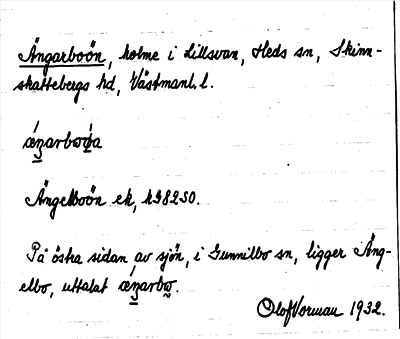 Ängarboön, holme i Lillsvan, Heds sn, Skinn-
skattebergs hd, Västmanl. l.
Ängelboön ek, h982SO.
På östra sidan av sjön, i Gunnilbo sn, ligger Äng-
elbo, uttalat
Olof Vorman 1932.